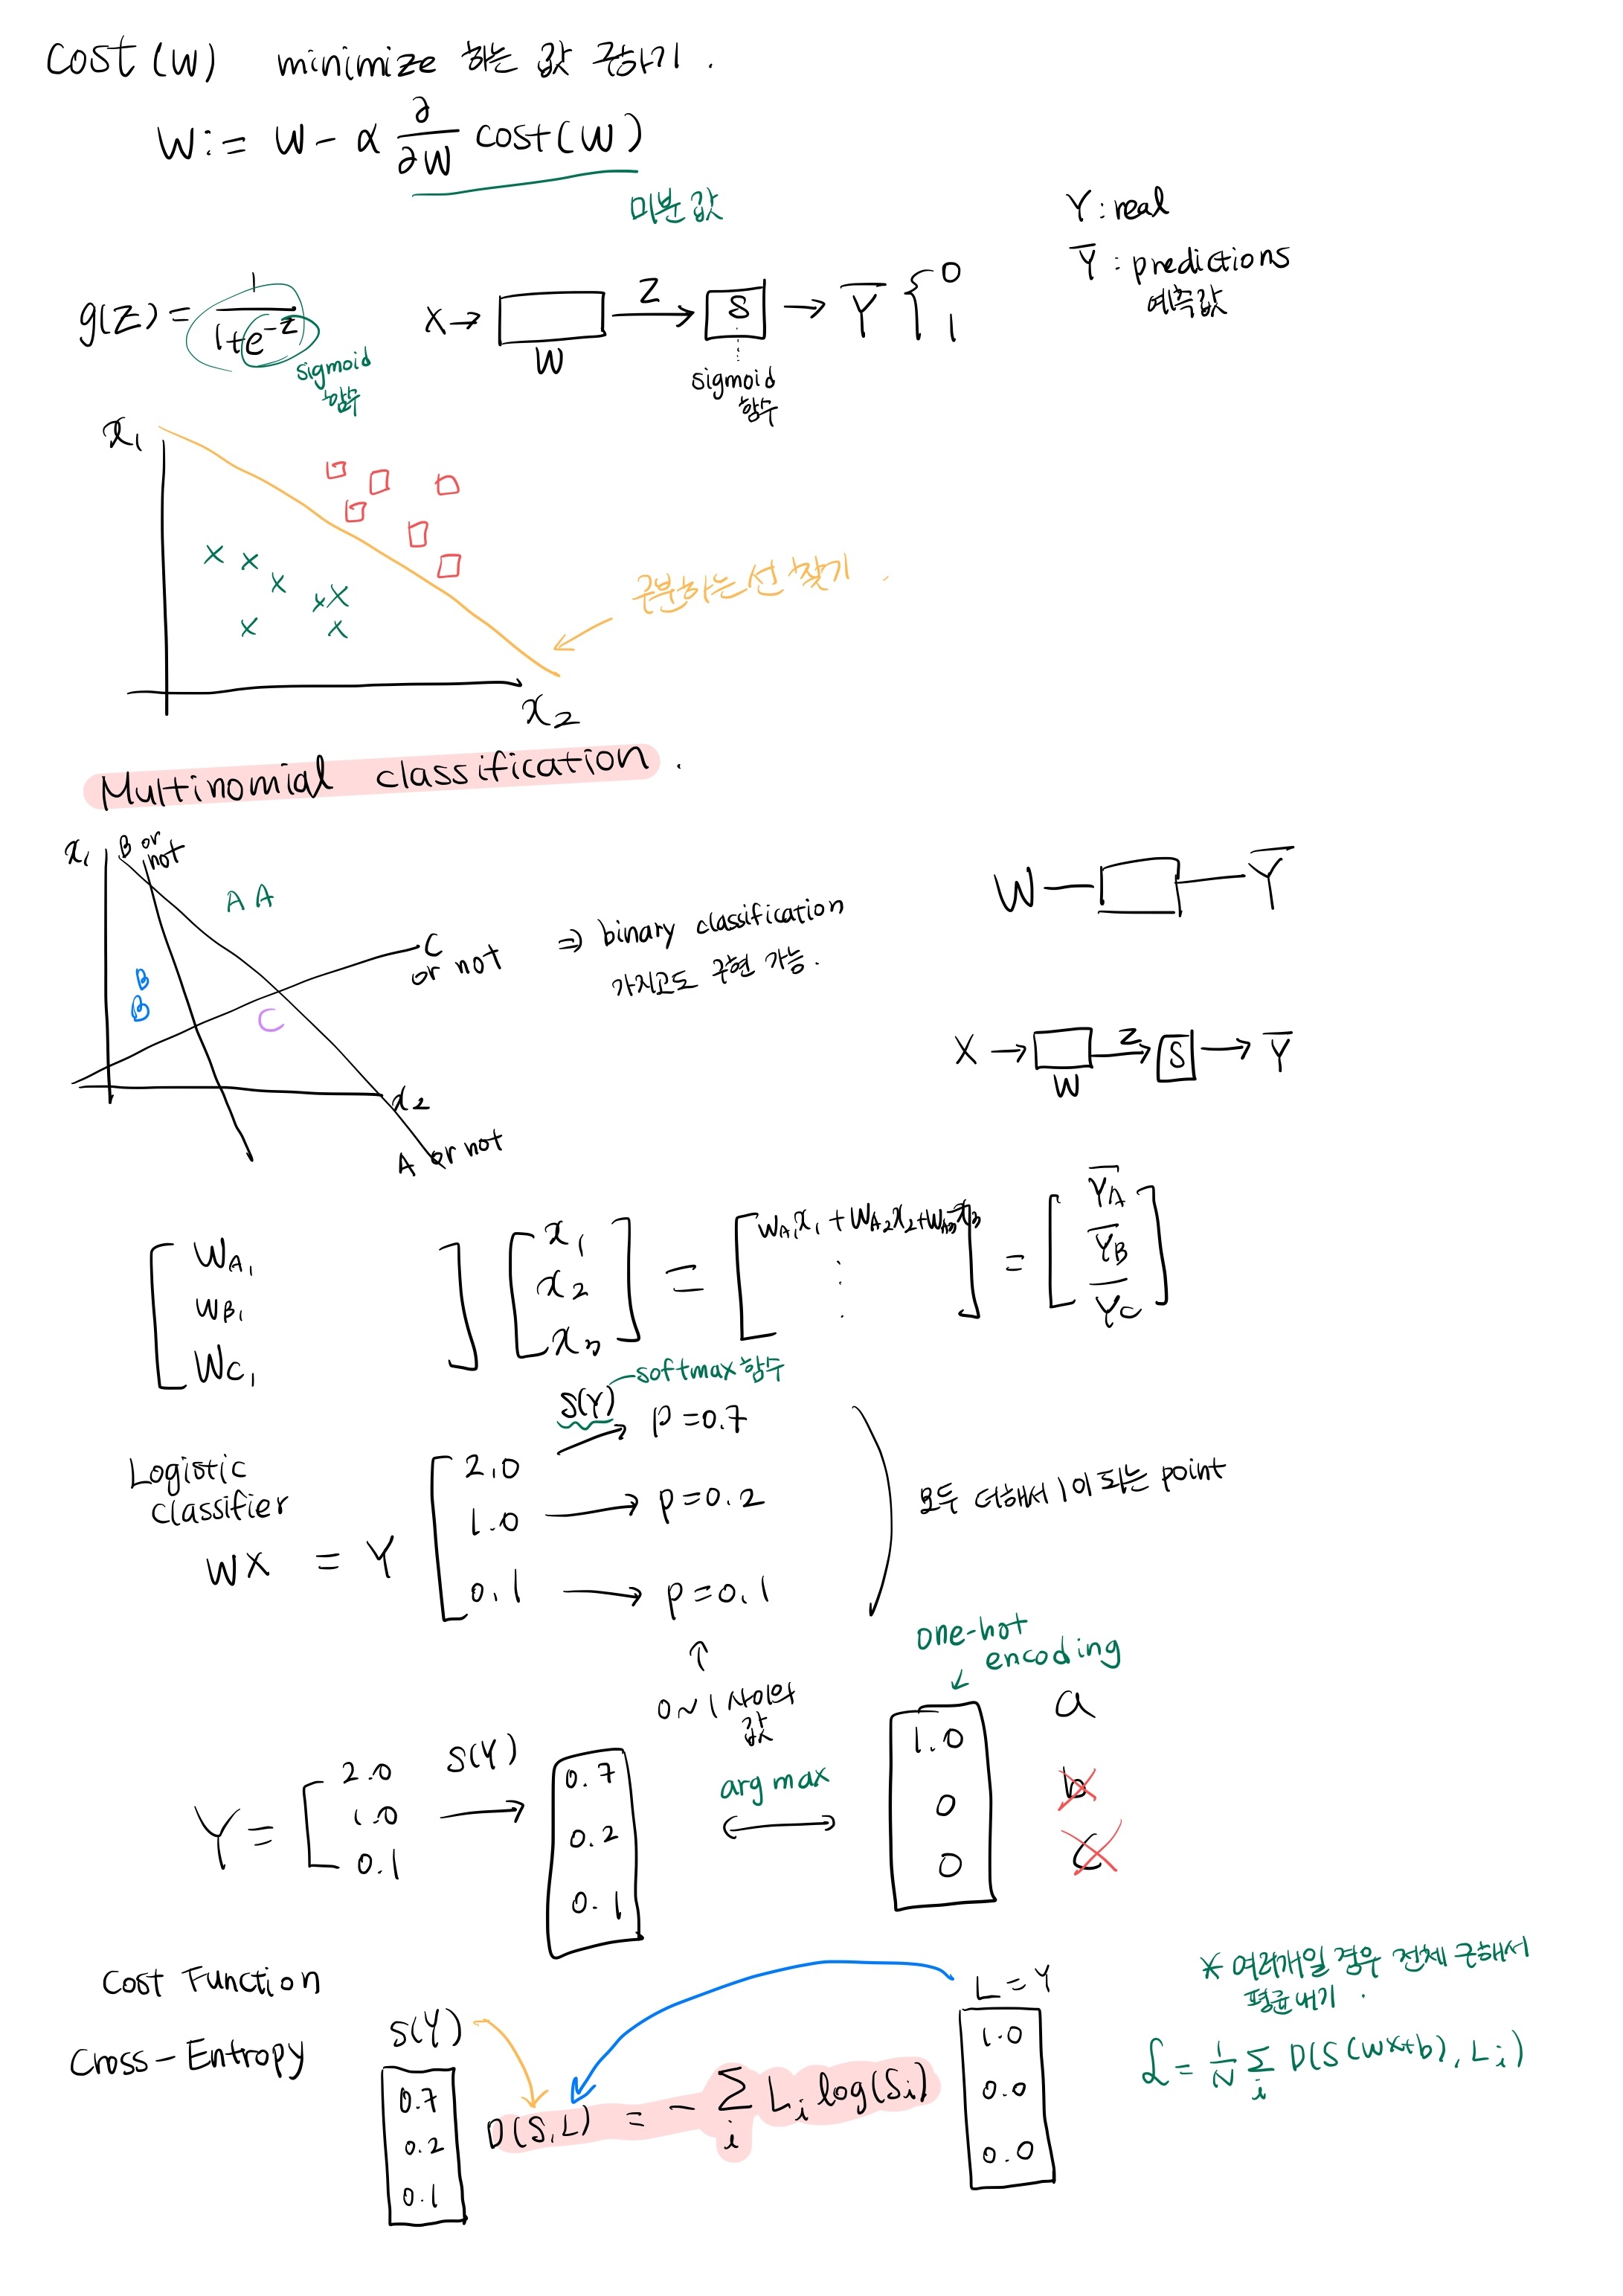 cost(W) minimize 하는 값 구하기.
W := W - α ∂/∂W cost(W)
미분값
Y : real
Y̅ : predictions
예측값
g(z) = 1/(1+e^-z)
sigmoid
함수
X → W Z → S → Y̅ { 0 1
sigmoid
함수
x₁
구분하는 선 찾기.
x₂
Multinomial classification.
x₁
B or not
A A
C or not
⇒ binary classification
가지고도 구현 가능.
B
B
C
x₂
A or not
W — Y̅
X → W Z → S → Y̅
[ W_A1 W_B1 W_C1 ] [ x₁ x₂ x₃ ] = [ W_A1x₁ + W_A2x₂ + W_A3x₃ ⋮ ] = [ Y̅_A Y̅_B Y̅_C ]
S(Y) softmax 함수
Logistic
classifier
WX = Y
2.0 → p=0.7
1.0 → p=0.2
0.1 → p=0.1
모두 더해서 1이 되는 point
↑
0~1 사이의
값
one-hot
encoding
Y = [ 2.0 1.0 0.1 S(Y) →
0.7
0.2
0.1
arg max
↔
1.0 a
0 b
0 c
Cost Function
Cross-Entropy
S(Y)
0.7
0.2
0.1
D(S,L) = - Σ_i L_i log(S_i)
L = Y
1.0
0.0
0.0
* 여러개일 경우 전체 구해서
평균내기.
ℒ = 1/N Σ_i D(S(wx+b), L_i)